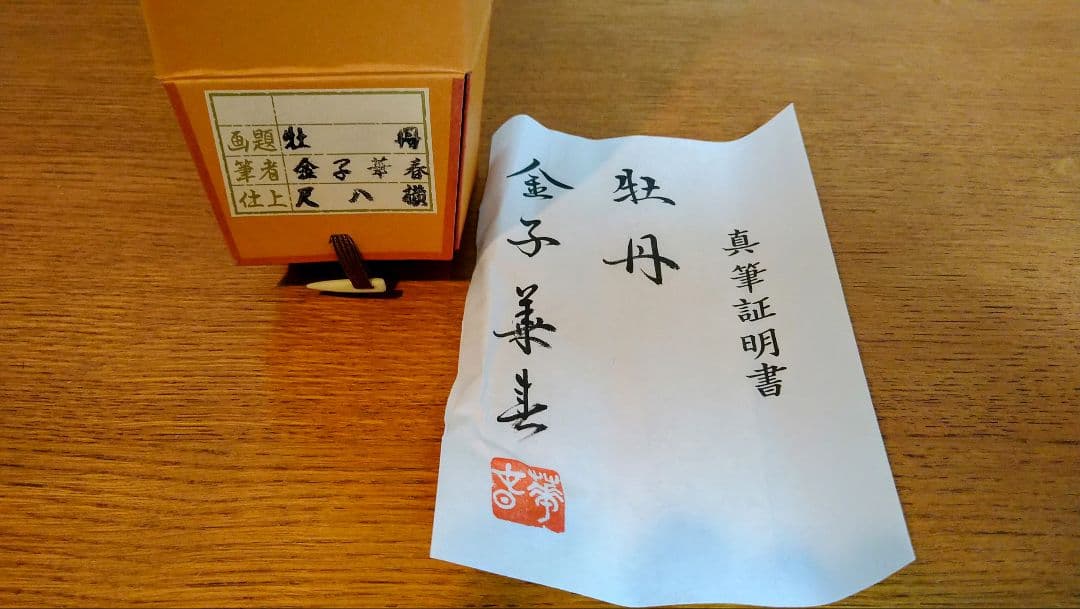 画題 牡丹
筆者 金子華春
仕上 尺八横
真筆証明書
牡丹
金子華春
華春